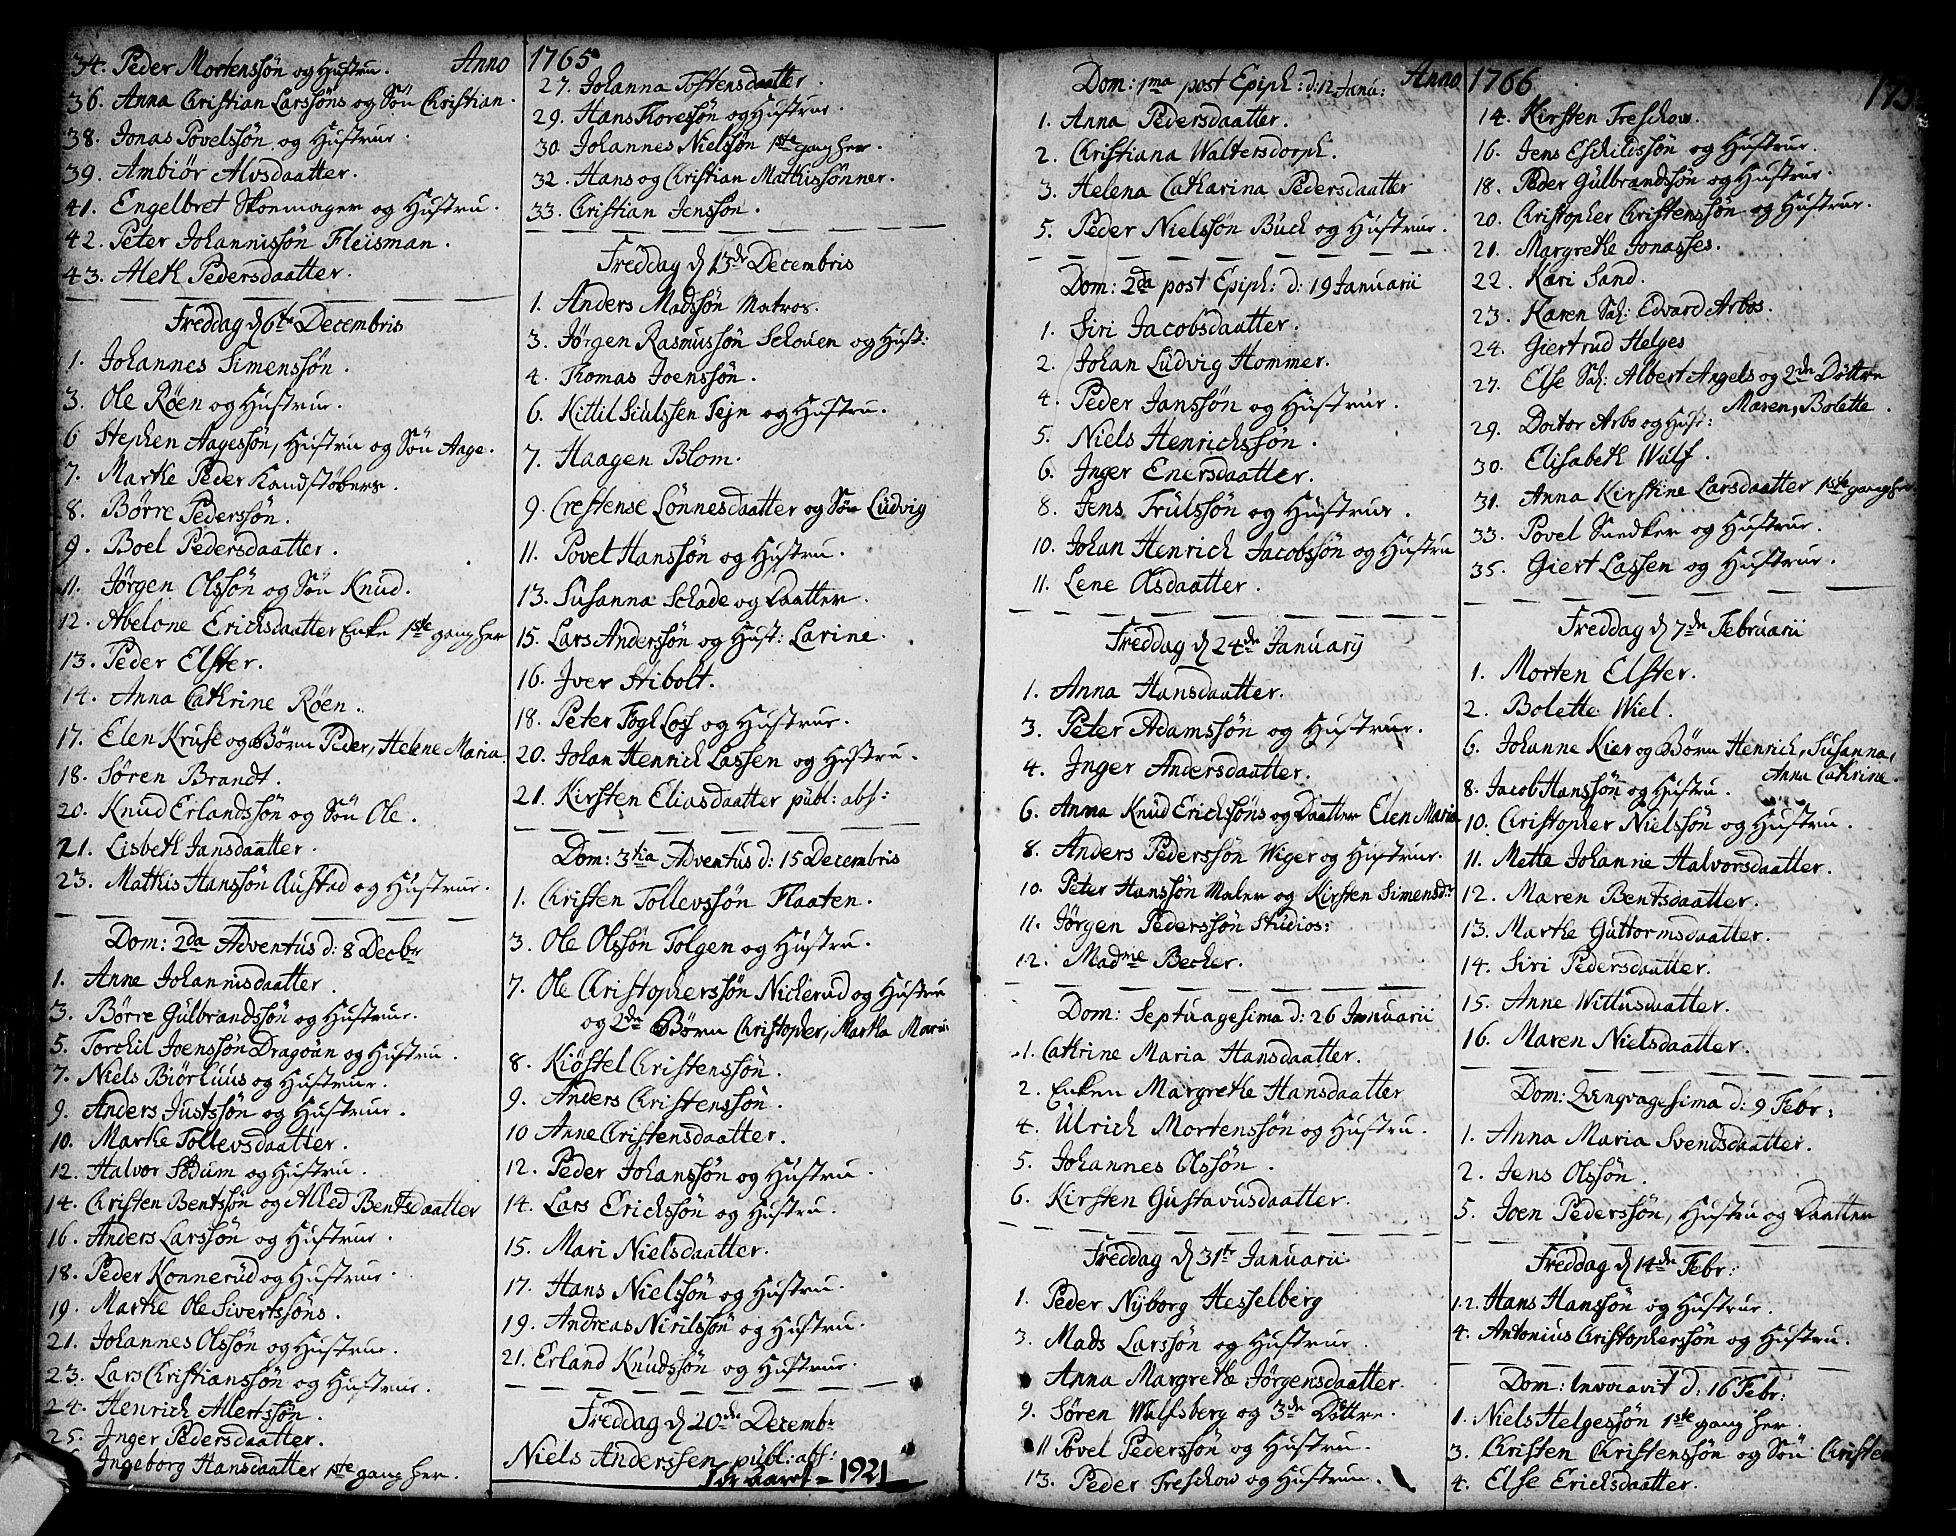 Anno 1765
34. Peder Mortenssön og Hustru.
36. Anna Christian Larssöns og Sön Christian.
38. Jonas Povelssön og Hustrue.
39. Ambiör Alvsdaatter.
41. Engelbret Skomager og Hustru.
42. Peter Johannissön Fleisman.
43. Aleth Pedersdaatter.
Freddag d 6te Decembris
1. Johannes Simenssön.
3. Ole Röen og Hustrue.
6 Stephen Aagessön, Hustru og Sön Aage.
7. Marthe Peder Kandstöbers.
8. Börre Pederssön.
9. Boel Pedersdaatter.
11. Jörgen Olssön og Sön Knud.
12. Abelone Ericksdaatter Enke 1ste gang her
13. Peder Elster.
14. Anna Cathrine Röen.
17. Elen Kruse og Börn Peder, Helene Maria
18. Sören Brandt.
20. Knud Erlandssön og Sön Ole.
21. Lisbeth Jansdaatter.
23. Mathis Hanssön Austad og Hustrue.
Dom: 2da Adventus d: 8 Decbr
1. Anne Johannisdaatter.
3. Börre Gulbrandssön og Hustrue.
5. Torchil Joenssön Dragoun og Hustru.
7. Niels Biörluus og Hustrue.
9. Anders Justssön og Hustrue.
10. Marthe Tollevsdaatter.
12. Halvor Sodum og Hustru.
14. Christen Bentssön og Alled Bentsdaatter
16. Anders Larssön og Hustrue.
18. Peder Konnerud og Hustrue.
19. Marthe Ole Sivertssöns.
21. Johannes Olssön og Hustrue.
23. Lars Christianssön og Hustrue.
24. Henrich Allertssön.
25. Inger Pedersdaatter.
Ingeborg Hansdaatter 1ste gang her.
27. Johanna Tostensdaatter.
29. Hans Koressön og Hustrue.
30. Johannes Nielssön 1ste gang her.
32. Hans og Christian Mathissönner.
33. Christian Jenssön.
Freddag d 13de Decembris
1. Anders Madssön Matros.
3. Jörgen Rasmussön Schouen og Hust:
4. Thomas Joenssön.
6. Kittil Siulssen Tejn og Hustru.
7. Haagen Blom.
9. Crestense Lönnesdaatter og Sön Ludvig
11. Povel Hanssön og Hustru.
13. Susanna Schade og Daatter.
15. Lars Anderssön og Hust: Larine.
16. Iver Stibolt.
18. Peter Fogl Loss og Hustrue.
20. Johan Henrich Lassen og Hustru.
21. Kirsten Eliasdaatter publ: abs:
Dom: 3tia Adventus d: 15 Decembris
1. Christen Tollevssön Flaaten.
3. Ole Olssön Tolgen og Hustru.
7. Ole Christopherssön Nickerud og Hustru
og 2de Börn Christopher, Martha Maria
8. Kiöstel Christenssön.
9. Anders Christenssön.
10 Anne Christensdaatter.
12. Peder Johanssön og Hustru.
14. Lars Erickssön og Hustru.
15. Mari Nielsdaatter.
17. Hans Nielssön og Hustru.
19. Andreas Nirilssön og Hustru.
21. Erland Knudssön og Hustrue.
Freddag d 20de Decembr
Niels Anderssen publ: abs:
Idr aaret = 1921
Anno 1766
Dom: 1ma post Epiph: d: 12 Janu:
1. Anna Pedersdaatter.
2. Christiana Waltersdorph.
3. Helena Catharina Pedersdaatter
5. Peder Nielssön Buch og Hustrue.
Dom: 2da post Epiph: d: 19 Januarii
1. Siri Jacobsdaatter.
2. Johan Ludvig Hommer.
4. Peder Janssön og Hustrue.
5. Niels Henrichssön.
6. Inger Enersdaatter.
8. Jens Trulssön og Hustrue.
10. Johan Henrich Jacobssön og Hustru
11. Lene Olsdaatter.
Freddag d 24de Januarij
1. Anna Hansdaatter.
3. Peter Adamssön og Hustrue.
4. Inger Andersdaatter.
6. Anna Knud Erickssöns og Daatter Elen Maria
8. Anders Pederssön Wiger og Hustrue.
10. Peter Hanssön Maler og Kirsten Simensd:
11. Jörgen Pederssön Studios:
12. Madme Becher.
Dom: Septuagesima d: 26 Januarii
1. Cathrine Maria Hansdaatter.
2. Enken Margrethe Hansdaatter
4. Ulrich Mortenssön og Hustru.
5. Johannes Olssön.
6. Kirsten Gustavusdaatter.
Freddag d 31te Januarii
1. Peder Nyborg Hesselberg
3. Mads Larssön og Hustrue.
Anna Margrethe Jörgensdaatter.
9. Sören Wulfsberg og 3de Döttre.
11 Povel Pederssön og Hustru.
13. Peder Treschow og Hustrue.
14. Kirsten Treschow.
16. Jens Eschildssön og Hustrue.
18. Peder Gulbrandssön og Hustrue.
20. Christopher Christenssön og Hustrue.
21. Margrethe Jonasses.
22. Kari Sand.
23. Karen Sal: Edvard Arbos.
24. Giertrud Helges
27. Else Sal: Albert Angels og 2de Döttre
Maren, Bolette.
29. Doctor Arbo og Hust:
30. Elisabeth Wulf.
31. Anna Kirstine Larsdaatter 1ste gang her
33. Povel Snedker og Hustrue.
35. Giert Lassen og Hustrue.
Freddag d 7de Februarii
1. Morten Elster.
2. Bolette Wiel.
6. Johanne Kier og Börn Henrich, Susanna,
Anna Cathrine.
8. Jacob Hanssön og Hustru.
10. Christopher Nielssön og Hustru.
11. Mette Johanne Halvorsdaatter.
12. Maren Bentsdaatter.
13. Marthe Guttormsdaatter.
14. Siri Pedersdaatter.
15. Anne Wittusdaatter.
16. Maren Nielsdaatter.
Dom: Qvinqvagesima d: 9 Febr:
1. Anna Maria Svendsdaatter.
2. Jens Olssön.
5. Joen Pederssön, Hustru og Daatter
Freddag d 14de Febr:
1.2. Hans Hanssön og Hustrue.
4. Antonius Christopherssön og Hustru.
Dom: Invocavit d: 16 Febr:
1. Niels Helgessön 1ste gang her.
3. Christen Christenssön og Sön Christen
4. Else Ericksdaatter.